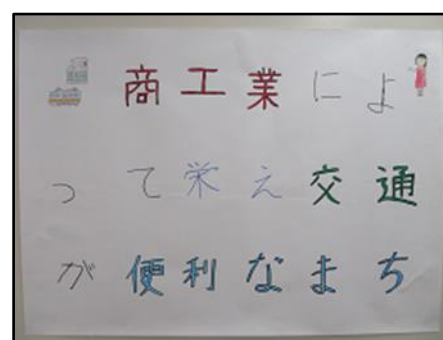 商工業によ
って栄え交通
が便利なまち